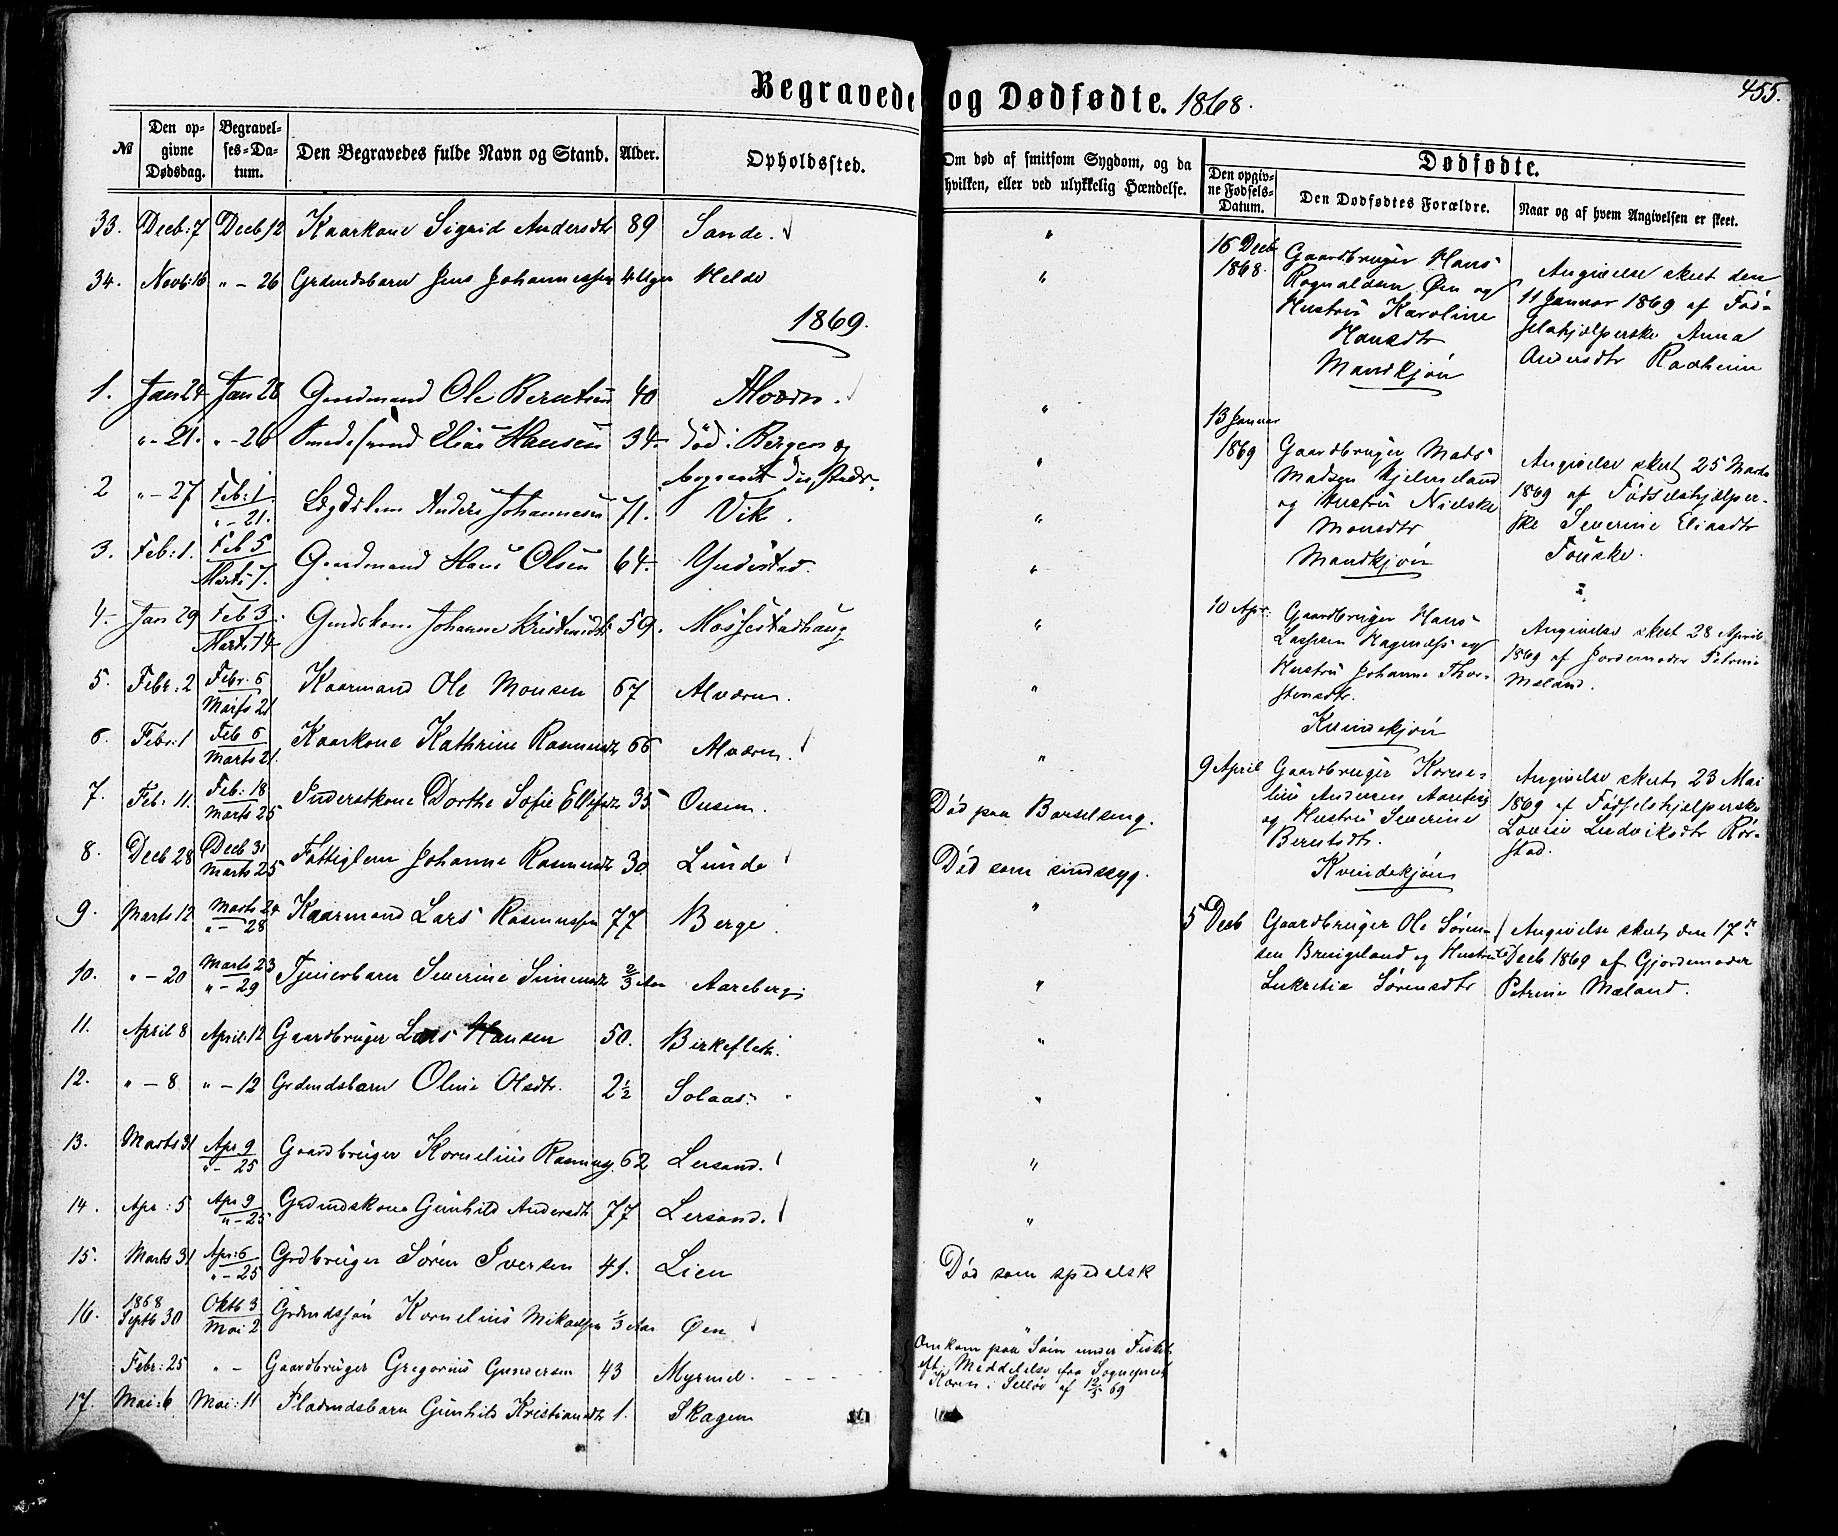 Begravede og Dødfødte. 1868.
455.
№
Den opgivne Dødsdag.
Begravelses-Datum.
Den Begravedes fulde Navn og Stand.
Alder.
Opholdssted.
Om død af smitsom Sygdom, og da hvilken, eller ved ulykkelig Hændelse.
Dødfødte.
Den opgivne Fødsels-Datum.
Den Dødfødtes Forældre.
Naar og af hvem Angivelsen er skeet.
33. Decb: 7 Decb 12 Kaarkone Sigrid Andersdtr 89 Sande. "
34. Novb: 16 " - 26 Grdmdsbarn Jens Johannessen 4 Uger Helde "
1869.
1. Jan 24 Jan 28 Gmd Ole Berntsen 40 Alværn. "
" - 21. " - 26 Smedesvend Elias Hansen 34 død i Bergen og
begravet dersteds. "
2 " - 27 Feb: 1. " - 21. Lægdslem Anders Johannesen 71. Vik. "
3. Feb: 1. Feb 5 Marts 7. Hans Olsen 64. Yndestad. "
4. Jan 29 Feb 3. Marts 14 Johanne 59. Mossestadhaug "
5. Febr: 2 Febr: 6 Marts 21 Kaarmand Ole Monsen 67 Alværn. "
6. Febr: 1 Feb 6 Marts 21. Kaarkone Kathrine Rasmusdtr 66 Alværn. "
7. Feb: 11. Feb: 18 Marts 25 Inderstkone Dorthe Sofie 35 Ousen. Død paa Barselseng.
8. Decb 28 Decb 31 Marts 25 Fattiglem Johanne Rasmusdtr 30 Lunde Død som sindssyg.
9. Marts 12 Marts 24 " - 28 Kaarmand Lars Rasmussen 77 Berge "
10. " - 20 Marts 23 " - 29 Tjenerbarn Severine Simensdtr 2/3 Aar Aareberg "
11. April 8 April: 12 Gaardbruger Lars Hansen 50. Birkeflet. "
12. " - 8 " - 12 Grdmdsbarn Oline Olsdtr. 2½ Solaas. "
13. Marts 31 Apr 9 " - 25 Gaardbruger Kornelius Rasmuss. 62 Lersand. "
14. Apr: 5 Apr 9 " - 25 Grdmdskone Gunhild Andersdtr 77 Lersand. "
15. Marts 31 Apr: 6 " - 25 Grdbruger Søren Iversen 41. Lien Død som spedalsk
16. 1868 Septb 30 Oktb 3 Mai 2 Grdmdssøn Kornelius Mikaelsen 1/3 Aar Øen "
Febr: 25 " - Gaardbruger Gregorius Gundersen 43 Myrmel. Omkom paa Søen under Fiskeri
eft. Meddelelse fra Sogneprest
Koren i Selløe af 12/3 69
17. Mai: 6 Mai: 11 Pladsmdsbarn Gunhild Kristiansdtr 1. Skagen
16 Decb 1868.
Gaardbruger Hans
Rognaldsen Øen og
Hustru Karoline
Hansdtr
Mandkjøn
Angivelse skeet den
11 Januar 1869 af Fød-
selshjælperske Anna
Andersdtr Raaheim
13 Januar 1869
Gaardbruger Mads
Madsen Hjelmeland
og Hustru Nielske
Monsdtr
Mandkjøn
Angivelse skeet 25 Marts
1869 af Fødselshjælper-
ske Severine Eliasdtr
Fouske.
10 Apr:
Gaardbruger Hans
og
Hustru Johanne Thor-
stensdtr.
Kvindekjøn
Angivelse skeet 28 April
1869 af Jordemoder Petrine
Mæland.
9 April
Gaardbruger Korne-
lius Andersen
og Hustru Severine
Berntsdtr.
Kvindekjøn
Angivelse skeet 23 Mai
1869 af Fødselshjælperske
Lovise Ludviksdtr Rør-
stad.
5 Decb
Gaardbruger Ole Søren-
sen Bruigeland og Hustru
Lukretia Sørensdtr
Angivelse skeet den 17de
Decb 1869 af Gjordemoder
Petrine Mæland.